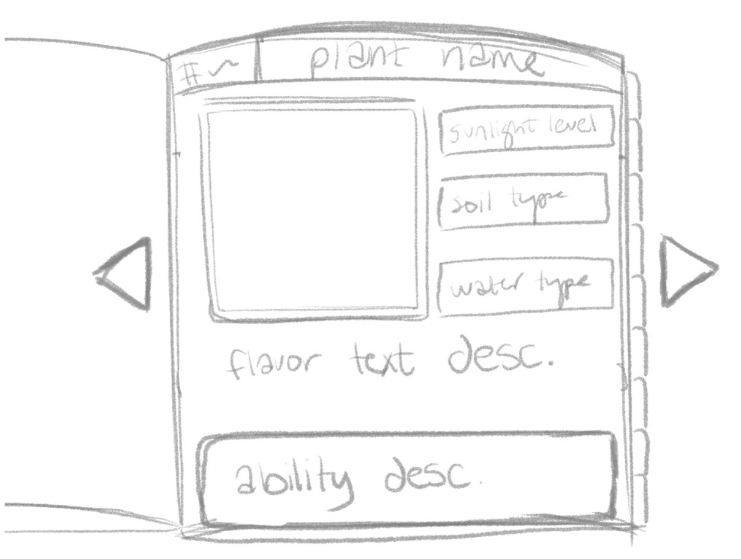 #~ plant name
sunlight level
soil type
water type
flavor text desc.
ability desc.